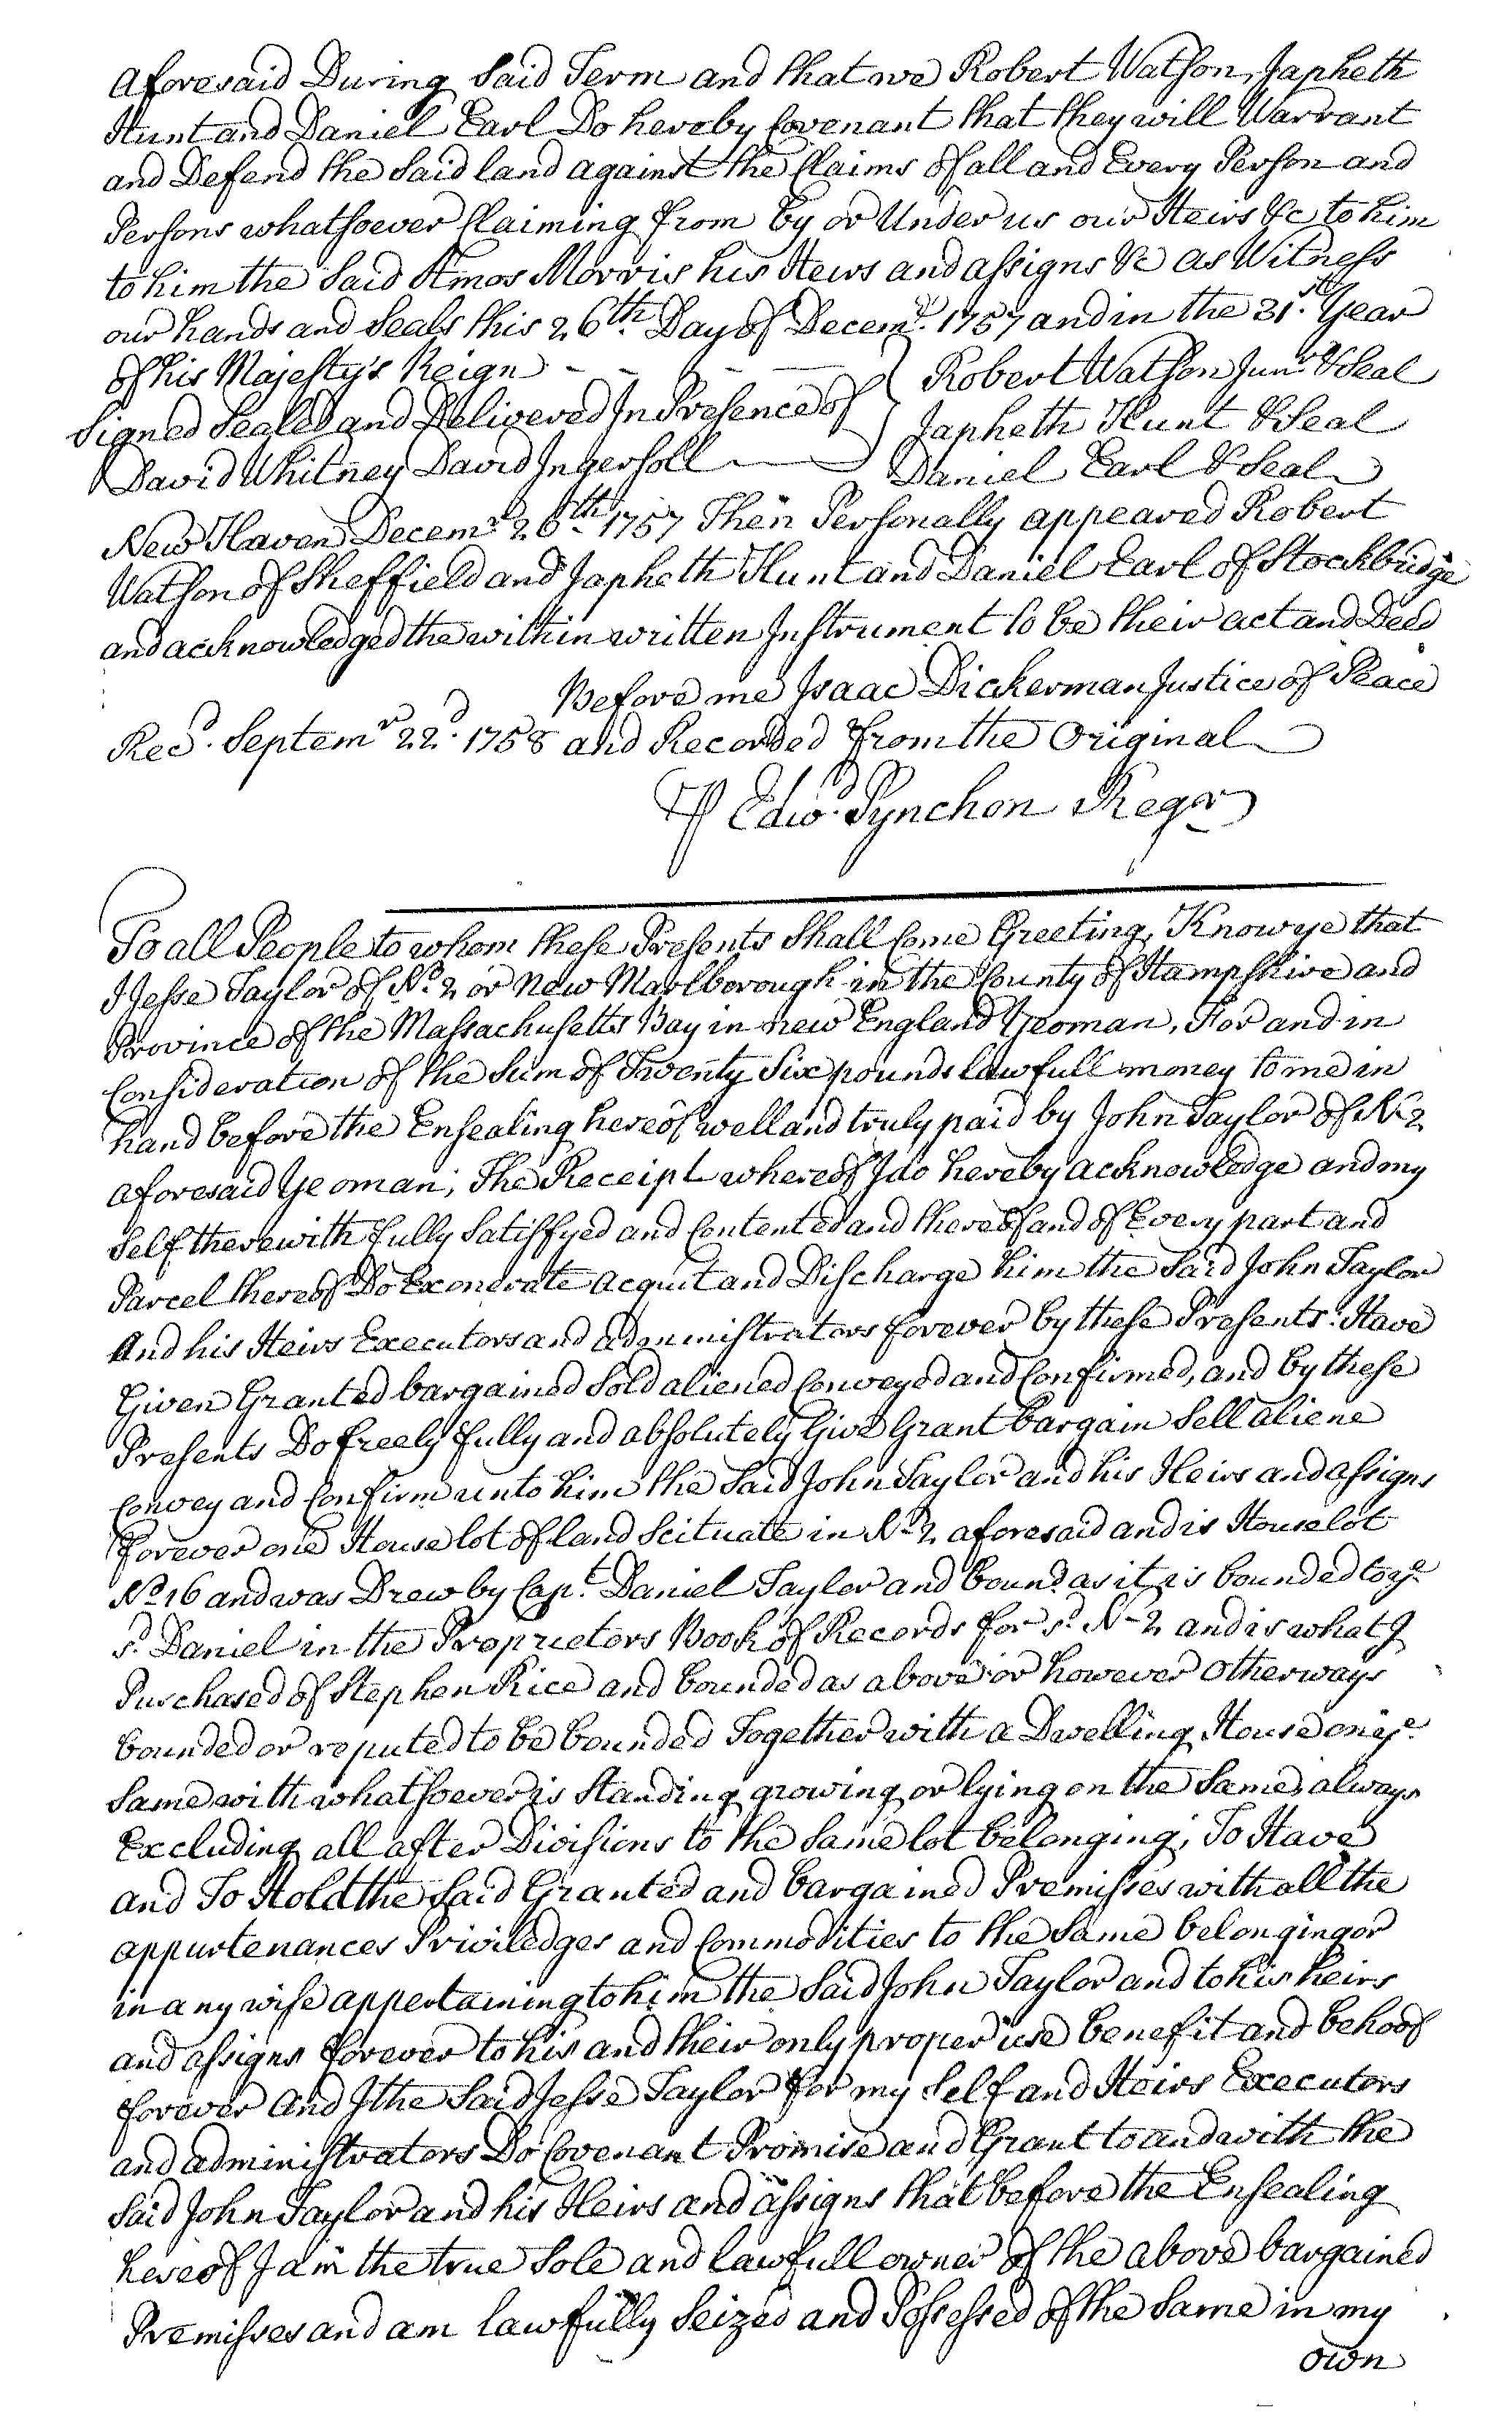 aforesaid During Said Term and that we Robert Watson, Japheth
Hunt and Daniel Earl Do hereby Covenant that they will Warrant
and Defend the Said land against the Claims of all and Every Person and
Persons whatsoever Claiming from by or Under us our Heirs &c to him
to him the Said Amos Morris his Heirs and assigns &c as Witness
our hands and Seals this 26th. Day of Decemr. 1757 and in the 31st. Year
of his Majesty's Reign - - - -
Signed Sealed and Delivered In Presence of } Robert Watson Junr. & Seal
David Whitney David Ingersoll } Japheth Hunt & Seal
Daniel Earl & Seal
New Haven Decemr. 26th. 1757 Then Personally appeared Robert
Watson of Sheffield and Japheth Hunt and Daniel Earl of Stockbridge
and acknowledged the within written Instrument to be their act and Deed
Before me Isaac Dickerman Justice of Peace
Recd. Septemr. 22d. 1758 and Recorded from the Original
⅌ Edwd. Pynchon Regr
To all People to whom these Presents Shall Come Greeting, Know ye that
I Jesse Taylor of No. 2 or New Marlborough in the County of Hampshire and
Province of the Massachusetts Bay in new England Yeoman, For and in
Consideration of the Sum of Twenty Six pounds lawfull money to me in
hand before the Ensealing hereof well and truly paid by John Taylor of No. 2
aforesaid Yeoman; The Receipt whereof I do hereby acknowledge and my
Self therewith fully Satisfyed and Contented and thereof and of Every part and
Parcel thereof Do Exonerate acquit and Discharge him the Said John Taylor
And his Heirs Executors and administrators forever by these Presents: Have
Given Granted bargained Sold aliened Conveyed and Confirmed, and by these
Presents Do freely fully and absolutely Give Grant bargain Sell aliene
Convey and Confirm unto him the Said John Taylor and his Heirs and assigns
forever one House lot of land Scituate in No. 2 aforesaid and is House lot
No. 16 and was Drew by Capt. Daniel Taylor and bound. as it is bounded to ye.
sd. Daniel in the Proprietors Book of Records for sd. No 2 and is what I
Purchased of Stephen Rice and bounded as above or however otherways
bounded or reputed to be bounded Together with a Dwelling House on ye.
Same with whatsoever is Standing growing or lying on the Same, always
Excluding all after Divisions to the Same lot belonging; To Have
and To Hold the Said Granted and bargained Premisses with all the
appurtenances Priviledges and Commodities to the Same belonging or
in any wise appertaining to him the Said John Taylor and to his heirs
and assigns forever to his and their only proper use benefit and behoof
forever And I the Said Jesse Taylor for my Self and Heirs Executors
and administrators Do Covenant Promise and Grant to and with the
Said John Taylor and his Heirs and assigns that before the Ensealing
hereof I am the true Sole and lawfull owner of the above bargained
Premisses and am lawfully Seized and Possessed of the Same in my
own